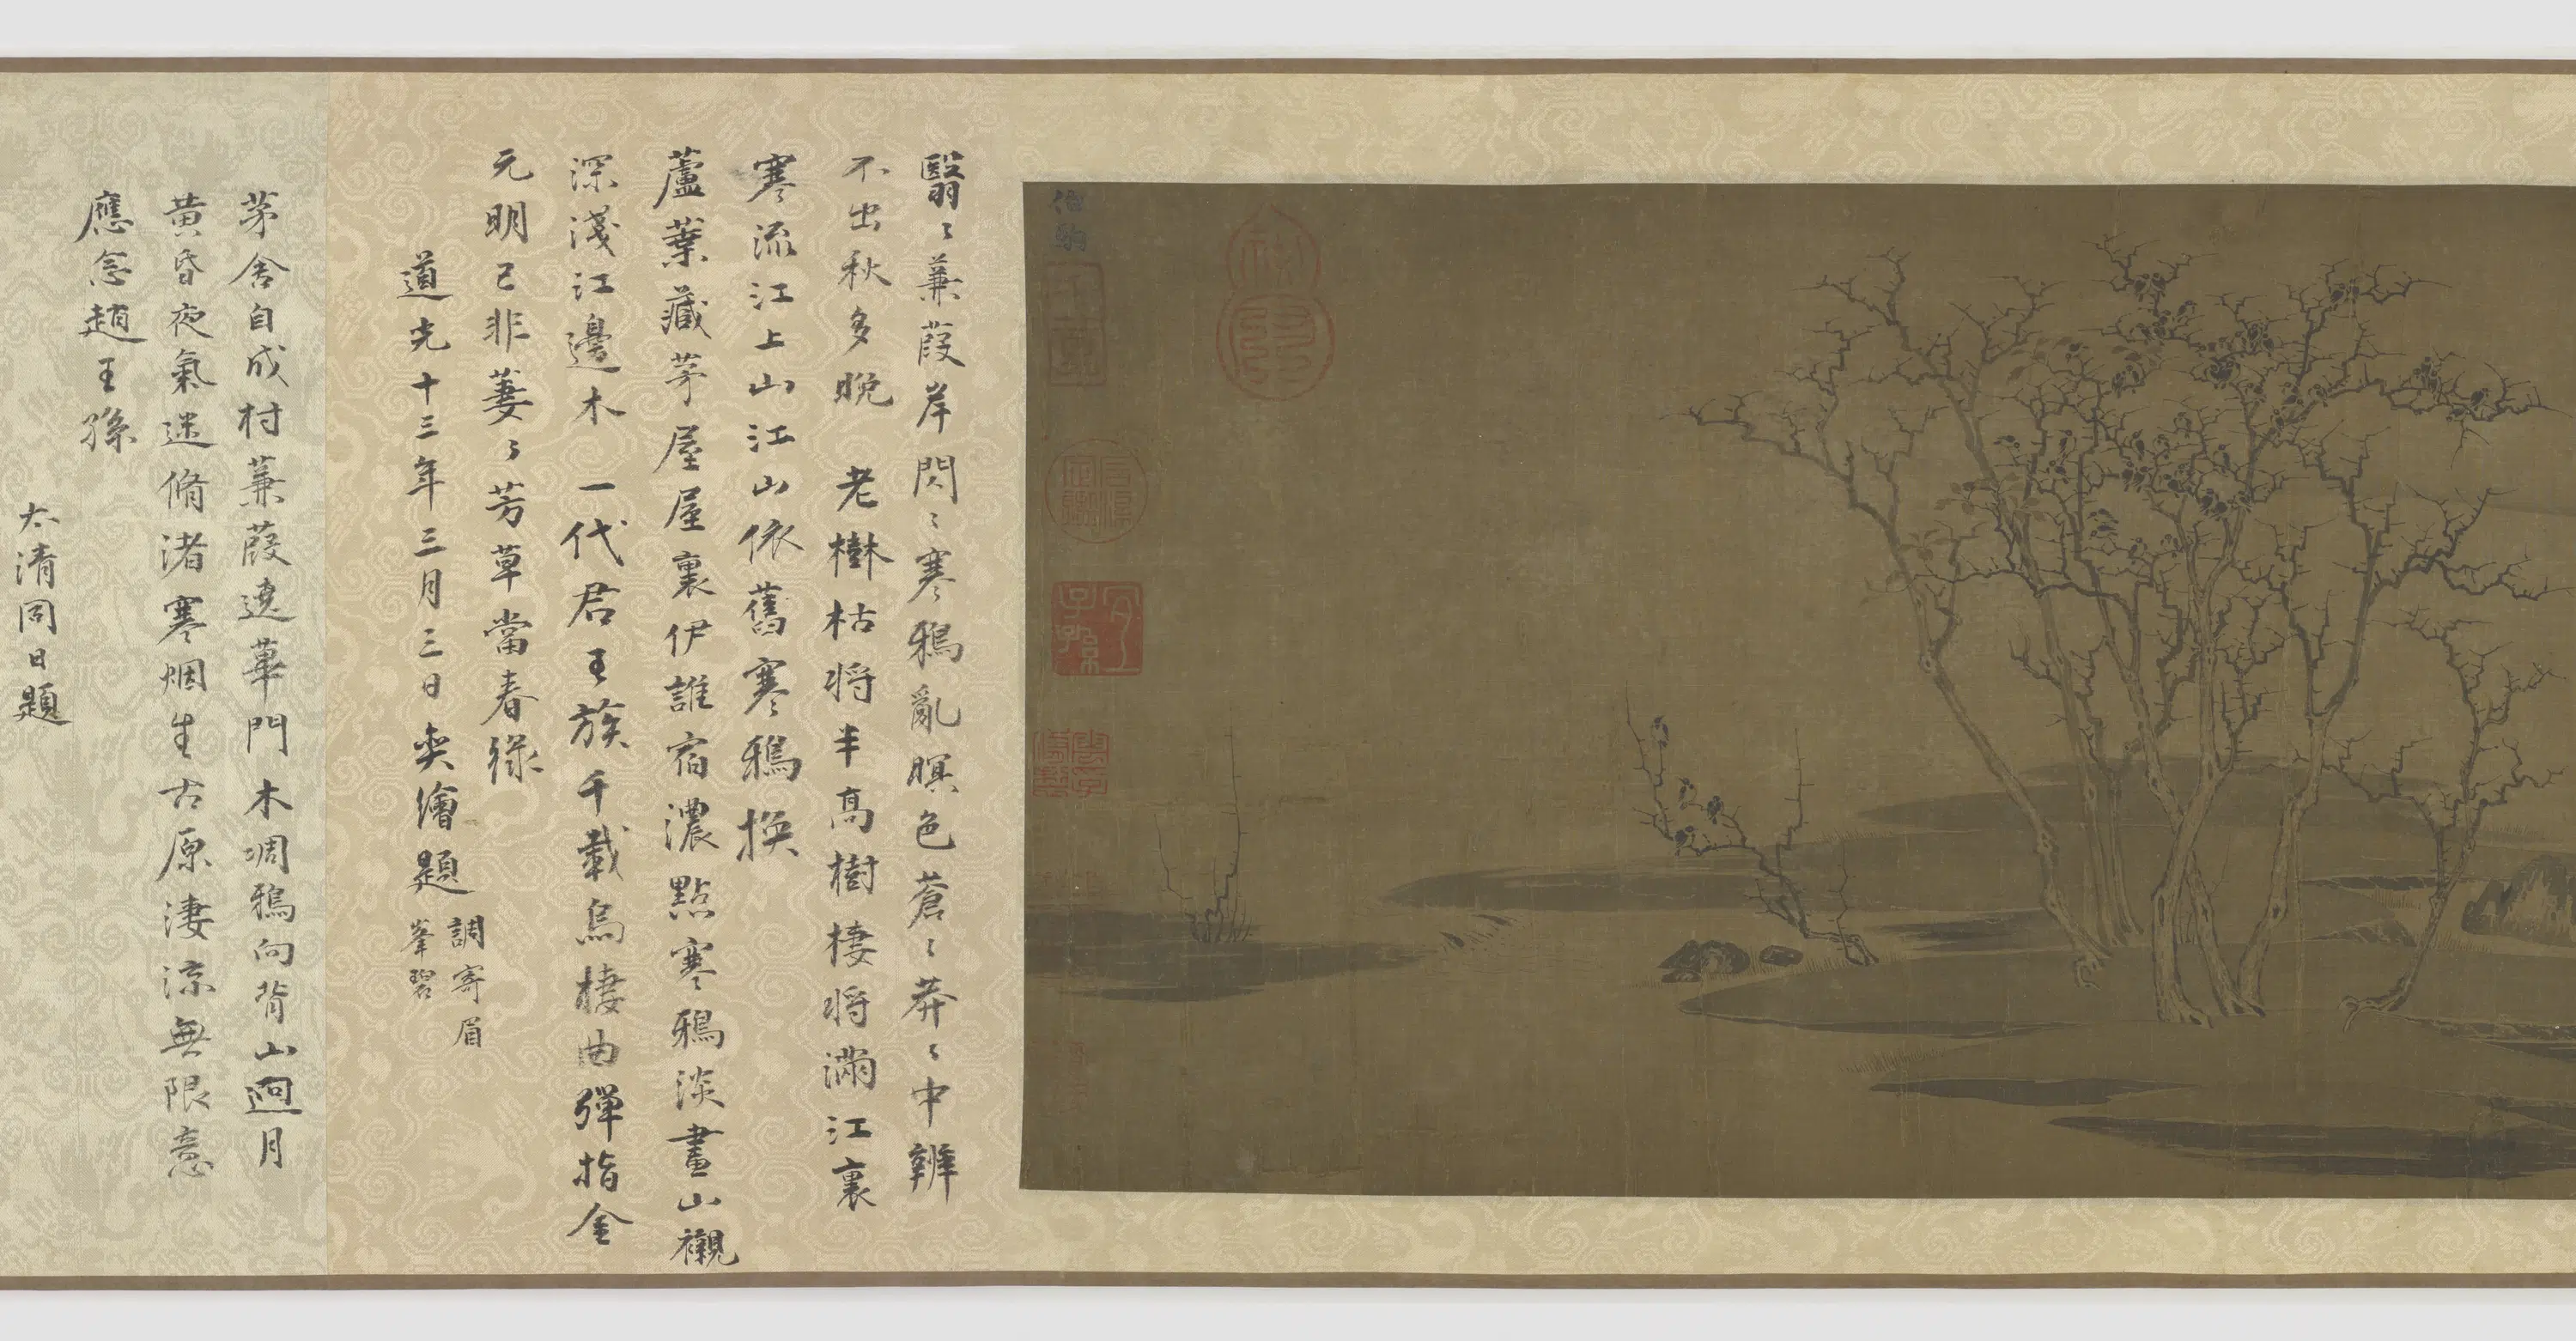 伯駒
千里
翳〻蒹葭岸閃〻寒鴉亂暝色蒼〻莽〻中辨
不出秋多晚　老樹枯将半高樹棲将滿江裏
寒流江上山江山依舊寒鴉換
蘆葉藏茅屋屋裏伊誰宿濃點寒鴉淡畫山襯
深淺江邊木一代君王族千載烏棲曲彈指金
元明已非萋〻芳草當春綠
道光十三年三月三日奕繪題
調寄眉
峯碧
茅舍自成村蒹葭遶蓽門木凋鴉向背山迥月
黃昏夜氣迷脩渚寒烟生古原淒涼無限意
應念趙王孫
太清同日題